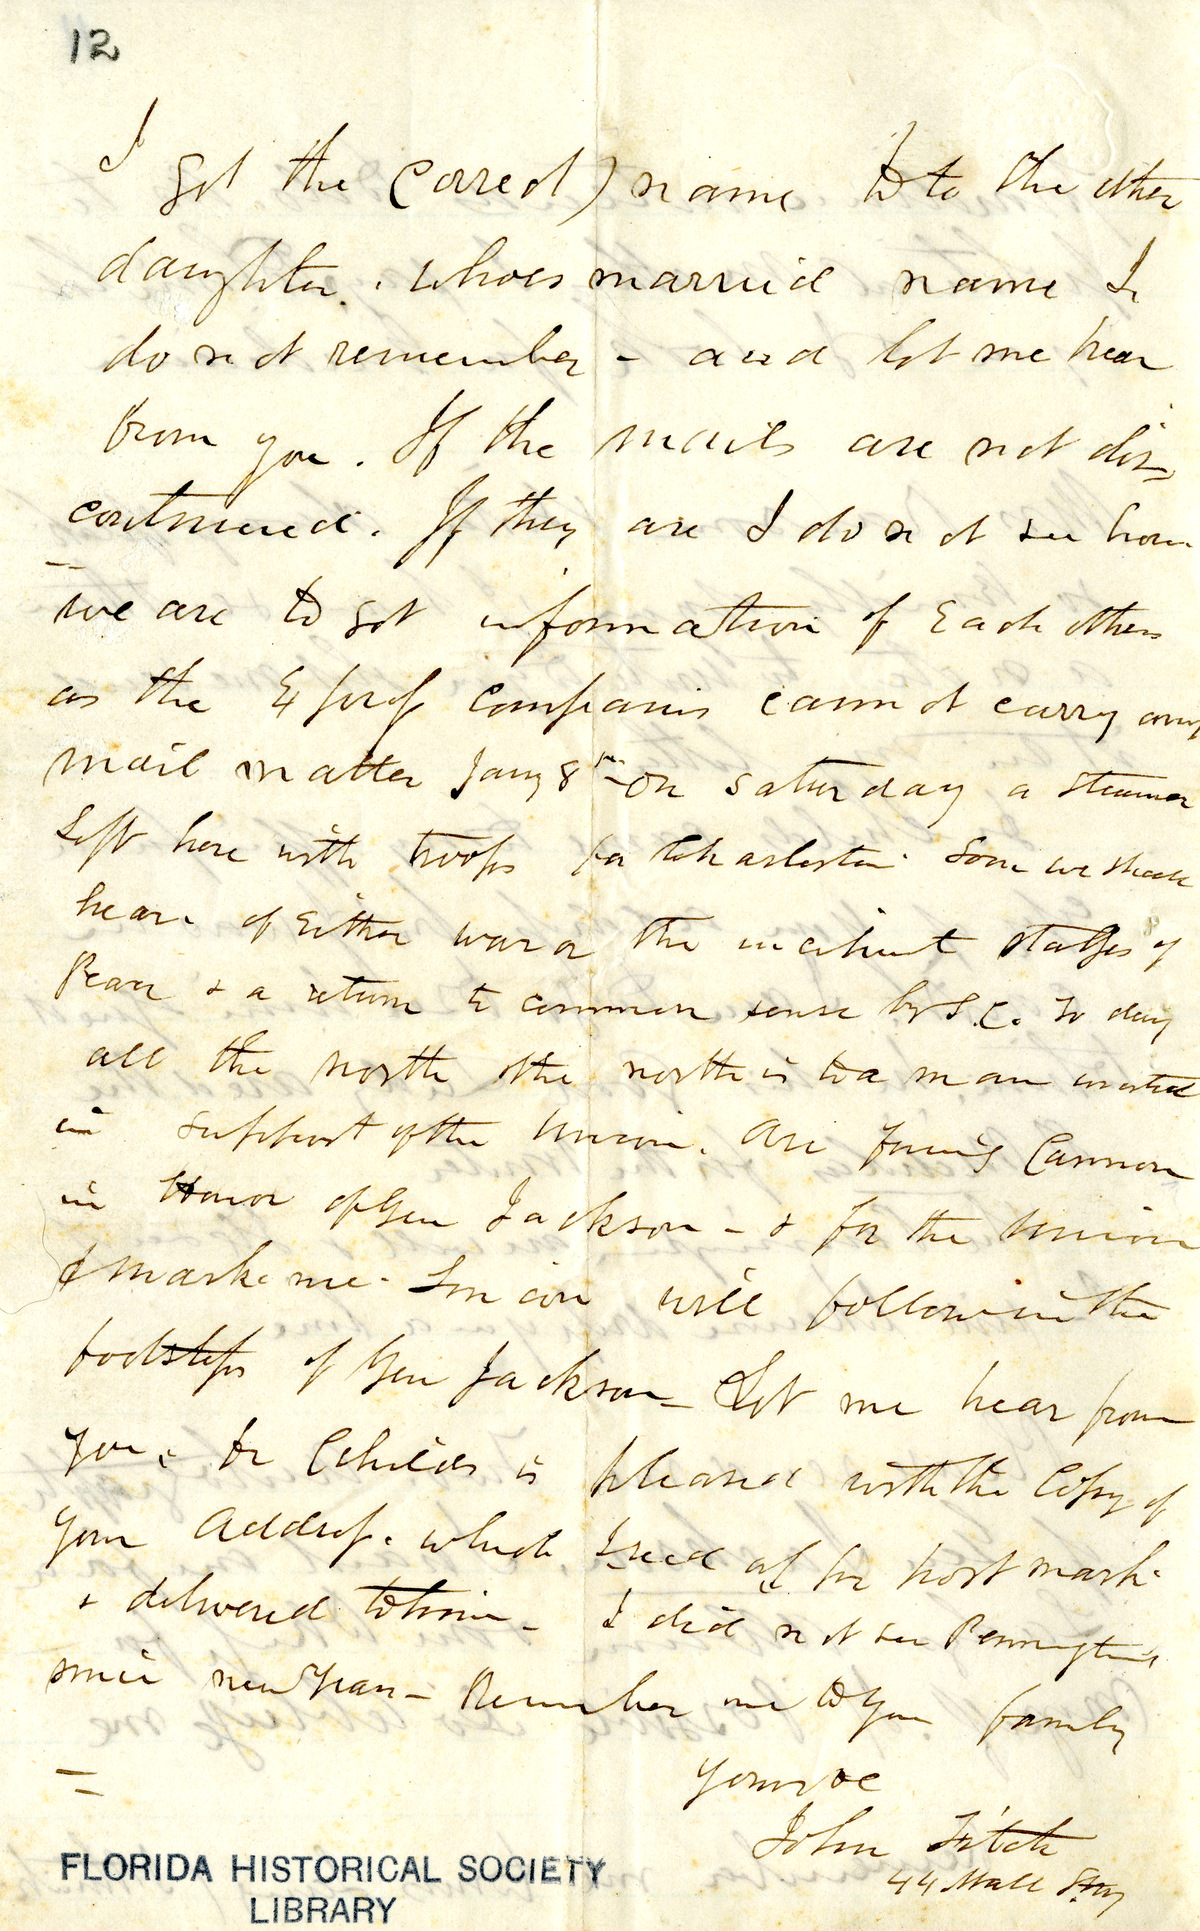 12
I got the (correct) name to to the other
daughter. whoes married name I
do not remember - and let me hear
from you. If the mails are not dis=
continued. If they are I do not see how
we are to get information of Each others
as the Express companies cannot carry any
mail matter Jany 8th On Saturday a steamer
left here with troops for Charleston Soon we shall
hear of Either war or the incipient stages of
Peace & a return to common sense by S.C. To day
all the north the north is to a man united
in support of the Union. Are firing Cannon
in Honor of Gen Jackson - & for the Union
& mark me. Lincoln will follow in the
footsteps of Gen Jackson - Let me hear from
you. Dr Childs is pleased with the Copy of
your Address. which I recd as per post mark
& delivered to him - I did not see Pennington
since new Year - Remember me to your family
Yours &c
John Fitch
44 Wall St NY
FLORIDA HISTORICAL SOCIETY
LIBRARY